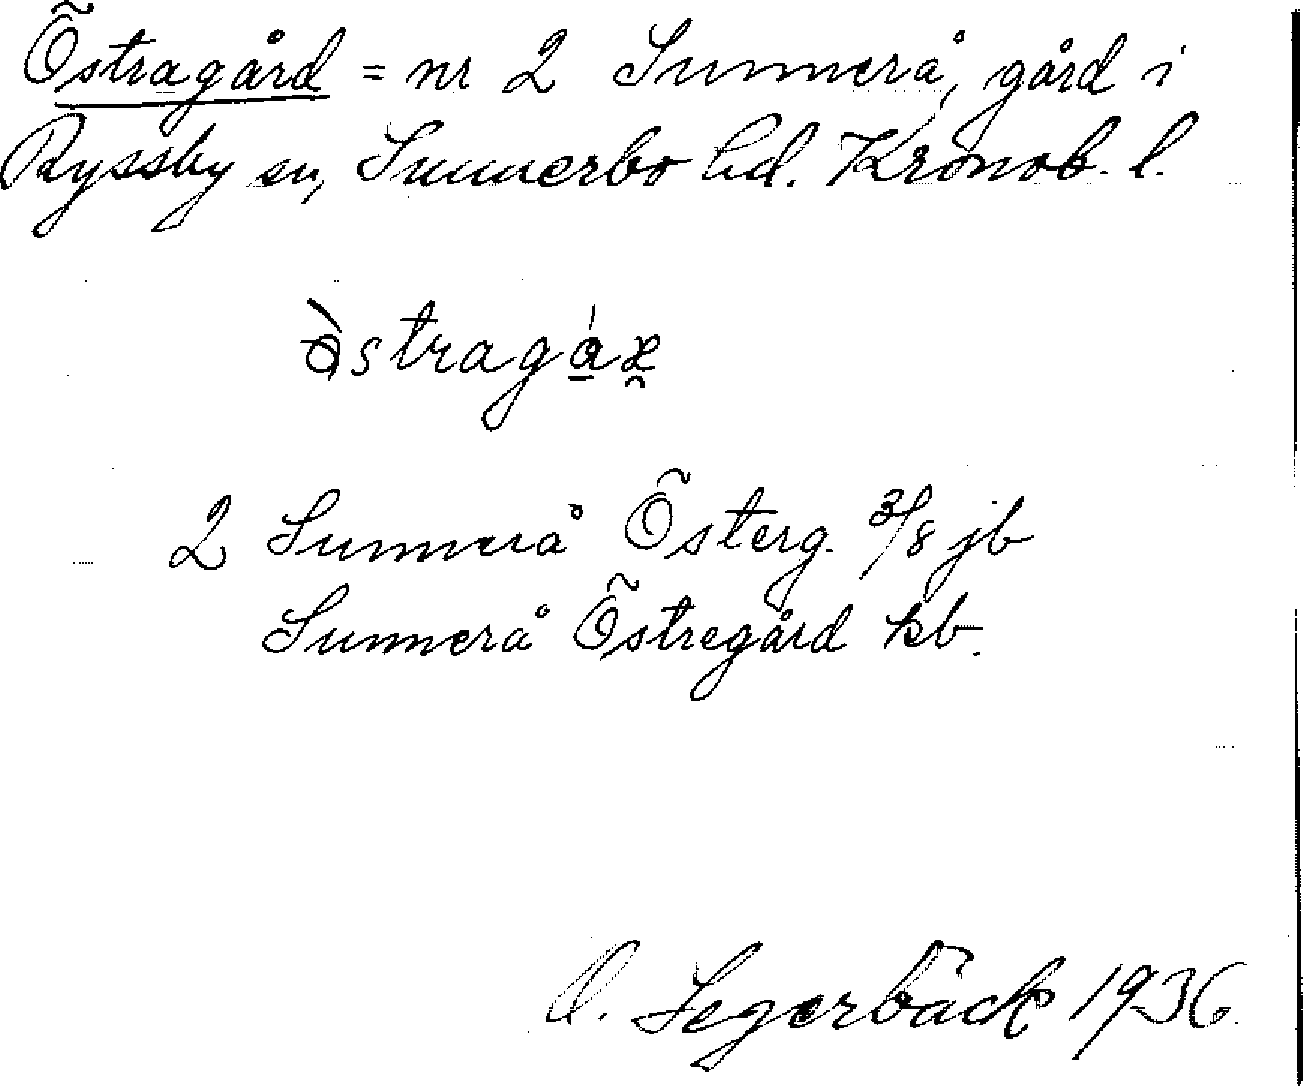 Östragård = nr 2 Sunnerå, gård i
Ryssby sn, Sunnerbo hd. Kronob. l.
2 Sunnerå Österg. 3/8 jb
Sunnerå Östregård kb.
Segerbäck 1936.